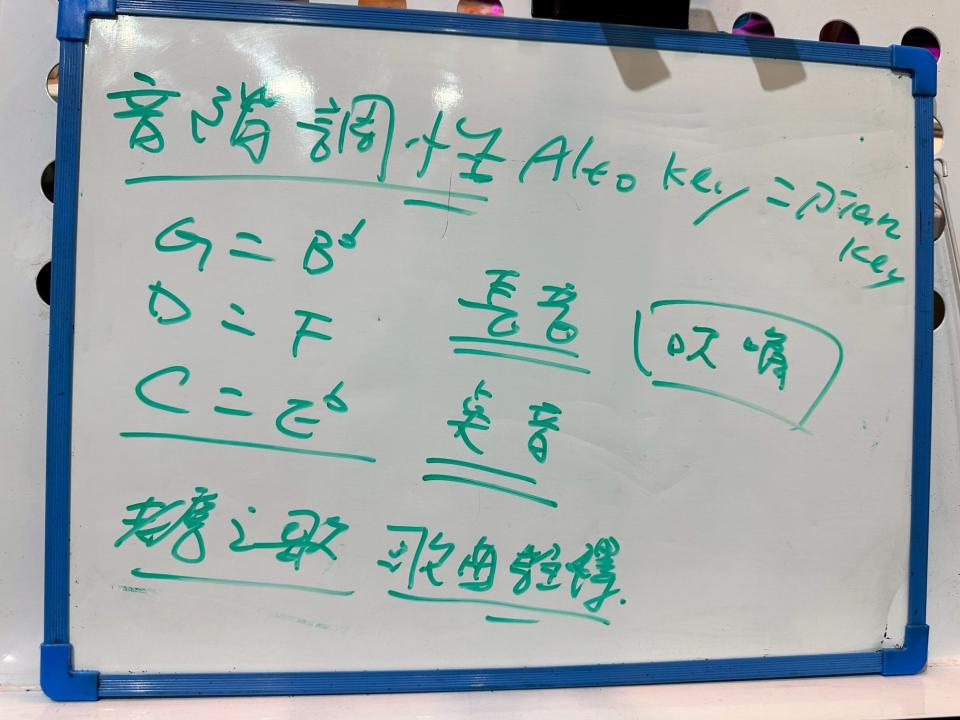 音階調性 Alto key = Pian key
G = B♭
D = F
C = E♭
長音
吹嘴
音
老鷹之歌 歌曲詮釋.